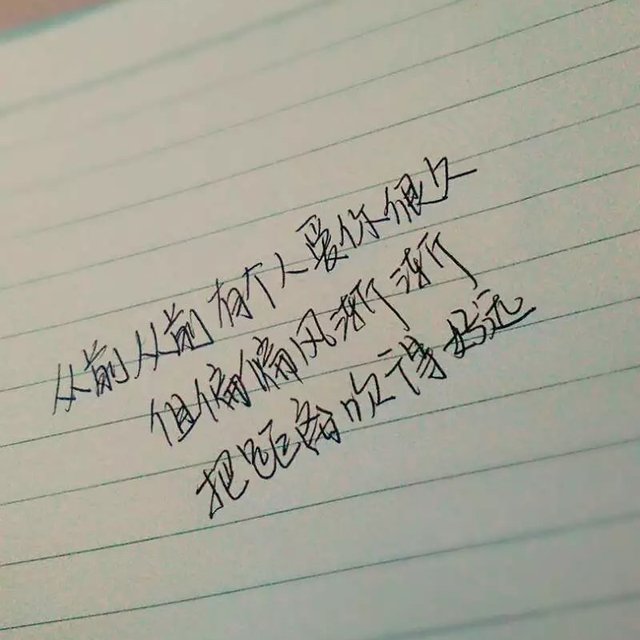 从前从前有个人爱你很久
但偏偏风渐渐
把距离吹得好远